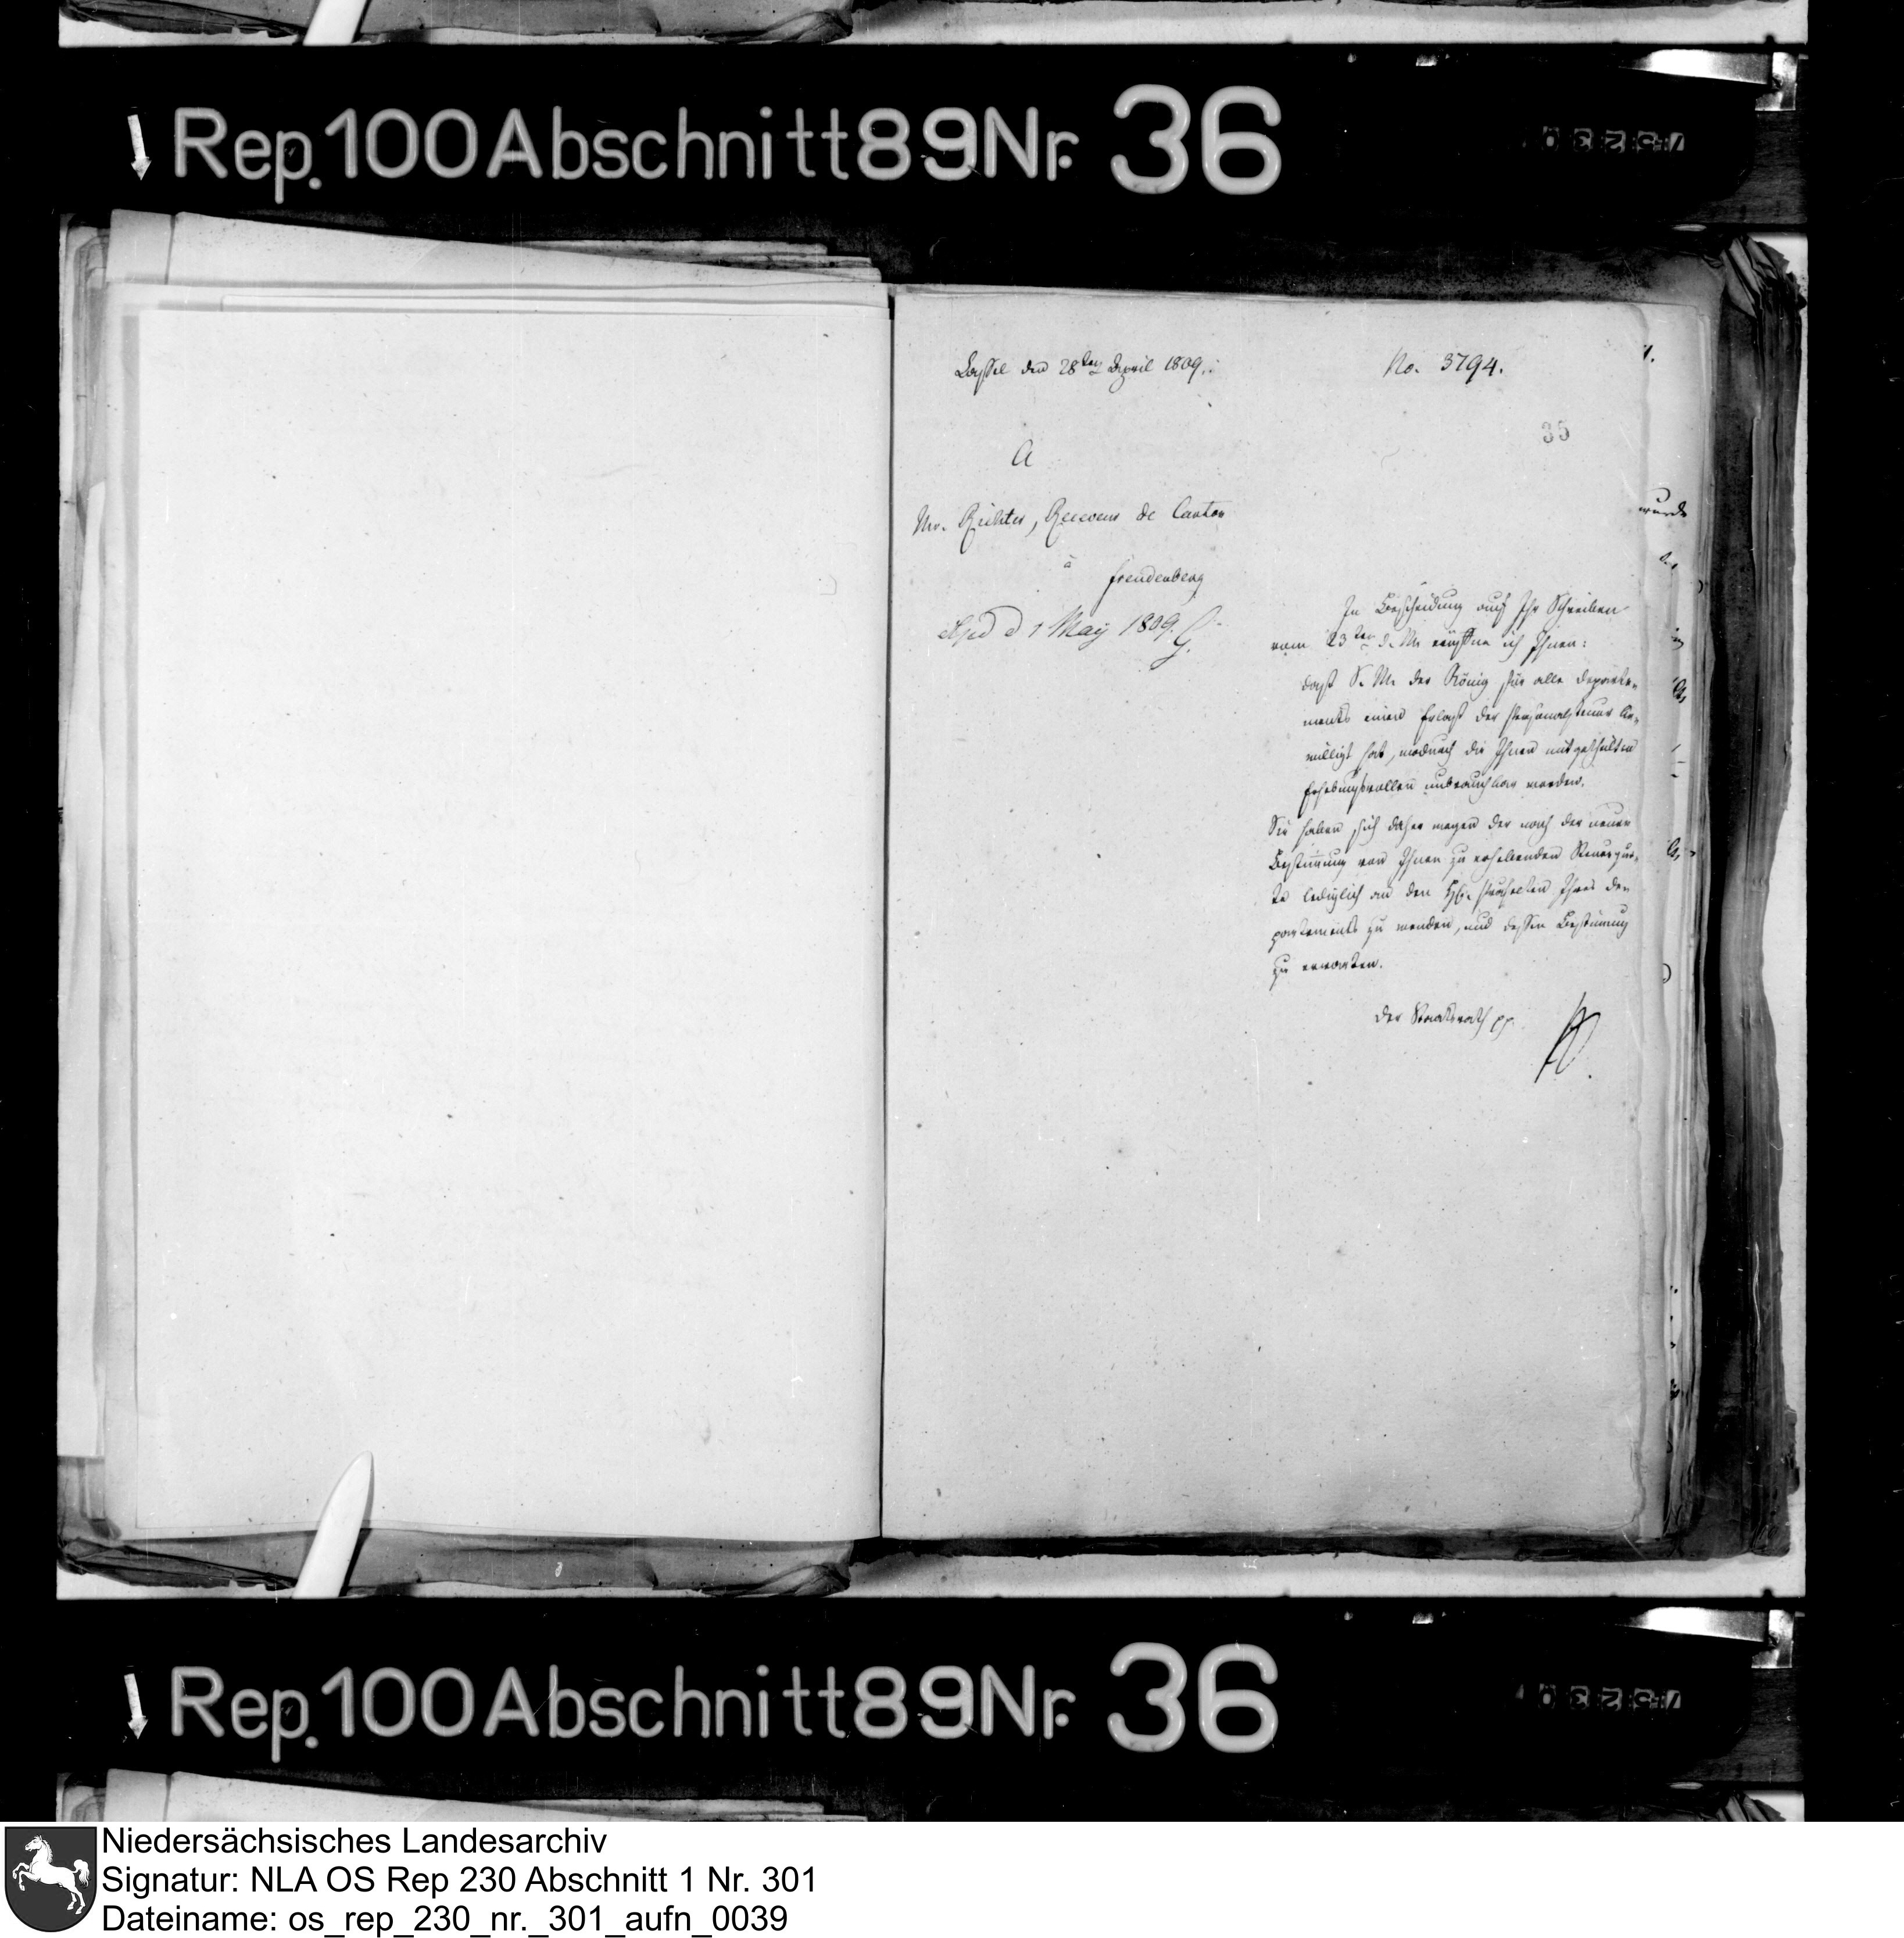 Rep. 100 Abschnitt 89 Nr. 36
Cassel den 28ten April 1809.
No. 3794.
35
A
Mr. Richter, Receveur de Canton
à
Freudenberg
exped d 1 May 1809. G.
In Bescheidung auf Ihr Schreiben
vom 23ten d. M. eröffne ich Ihnen:
daß S. M. der König für alle Departe-
ments einen Erlaß der Personalsteuer be-
willigt hat, wodurch die Ihnen mitgetheilten
Erhebungsrollen unbrauchbar werden.
Sie haben sich daher wegen der nach der neuen
Bestimung von Ihnen zu erhebenden Steuerquo-
te lediglich an den H. Präfecten Ihres De-
partements zu wenden, und dessen Bestimung
zu erwarten.
Der Staatsrath pp.
wurde
Rep. 100 Abschnitt 89 Nr. 36
Niedersächsisches Landesarchiv
Signatur: NLA OS Rep 230 Abschnitt 1 Nr. 301
Dateiname: os_rep_230_nr._301_aufn_0039